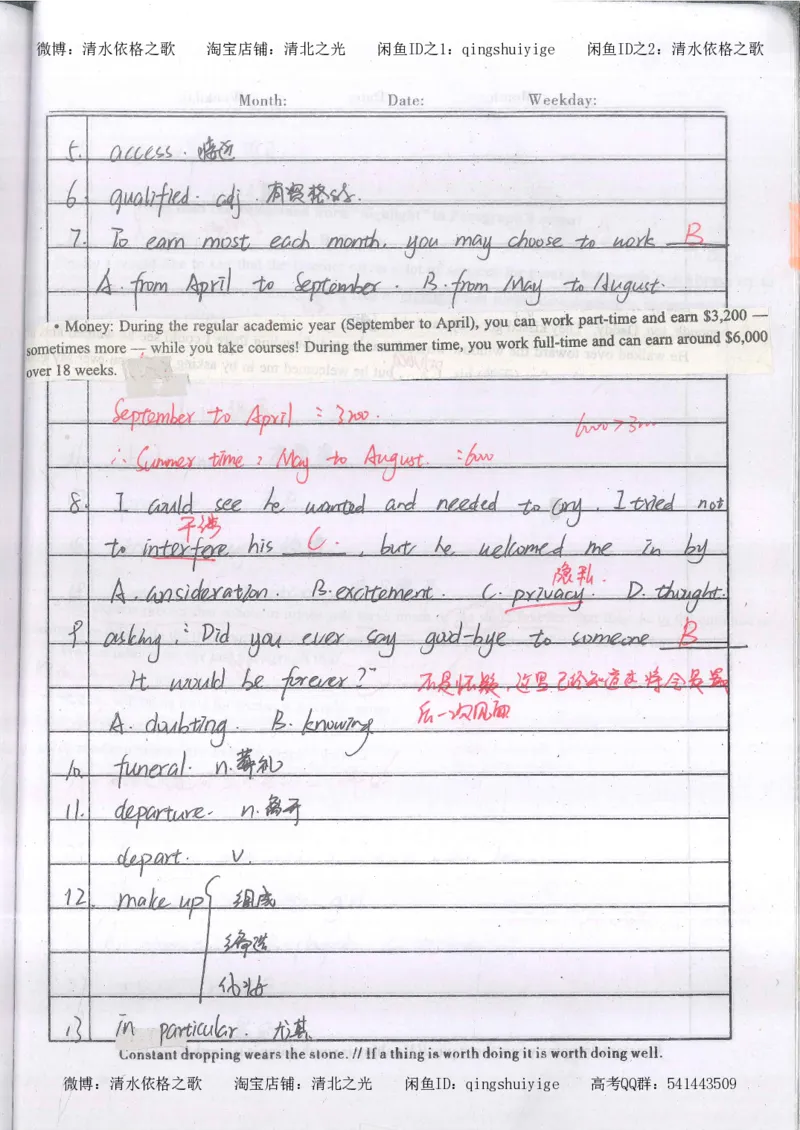 微博：清水依格之歌 淘宝店铺：清北之光 闲鱼ID之1：qingshuiyige 闲鱼ID之2：清水依格之歌
Month: Date: Weekday:
5. access. 接近
6. qualified. adj. 有资格的.
7. To earn most each month, you may choose to work B
A. from April to September. B. from May to August.
• Money: During the regular academic year (September to April), you can work part-time and earn $3,200 —
sometimes more — while you take courses! During the summer time, you work full-time and can earn around $6,000
over 18 weeks.
September to April : 3200.
6000>3200
∴ Summer time : May to August. : 6000
8. I could see he wanted and needed to cry. I tried not
干涉
to interfere his C. , but he welcomed me in by
隐私.
A. consideration. B. excitement. C. privacy. D. thought.
9. asking : "Did you ever say good-bye to someone B
it would be forever?"
不是怀疑，这里已经知道这将会是最
后一次见面
A. doubting. B. knowing
10. funeral. n. 葬礼
11. departure. n. 离开
depart. v.
12. make up { 组成
编造
化妆
13 in particular. 尤其
Constant dropping wears the stone. // If a thing is worth doing it is worth doing well.
微博：清水依格之歌 淘宝店铺：清北之光 闲鱼ID：qingshuiyige 高考QQ群：541443509